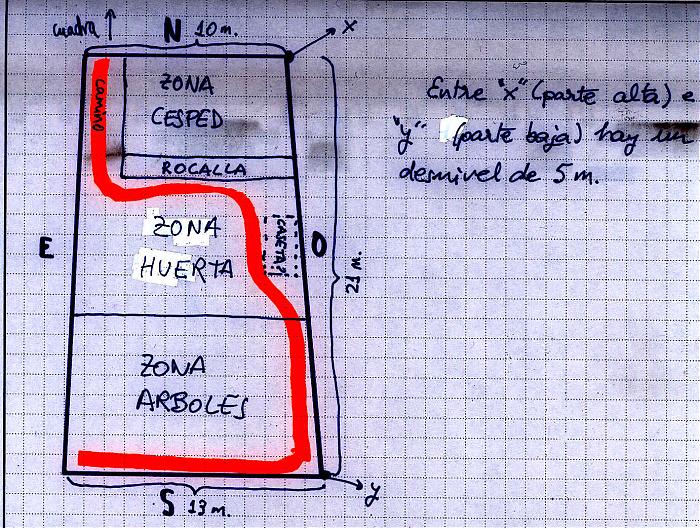 cuadra
N 10 m.
x
camino
ZONA
CESPED
ROCALLA
Entre "x" (parte alta) e
"y" (parte baja) hay un
desnivel de 5 m.
E
ZONA
HUERTA
CASETA?
O
21 m.
ZONA
ARBOLES
S 13 m.
y